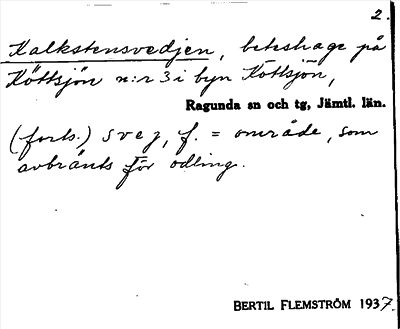 2.
Kalkstensvedjen, beteshage på
Köttsjön n:r 3 i byn Köttsjön,
Ragunda sn och tg, Jämtl. län.
(forts.) svej, f. = område, som
avbränts för odling.
BERTIL FLEMSTRÖM 1937.